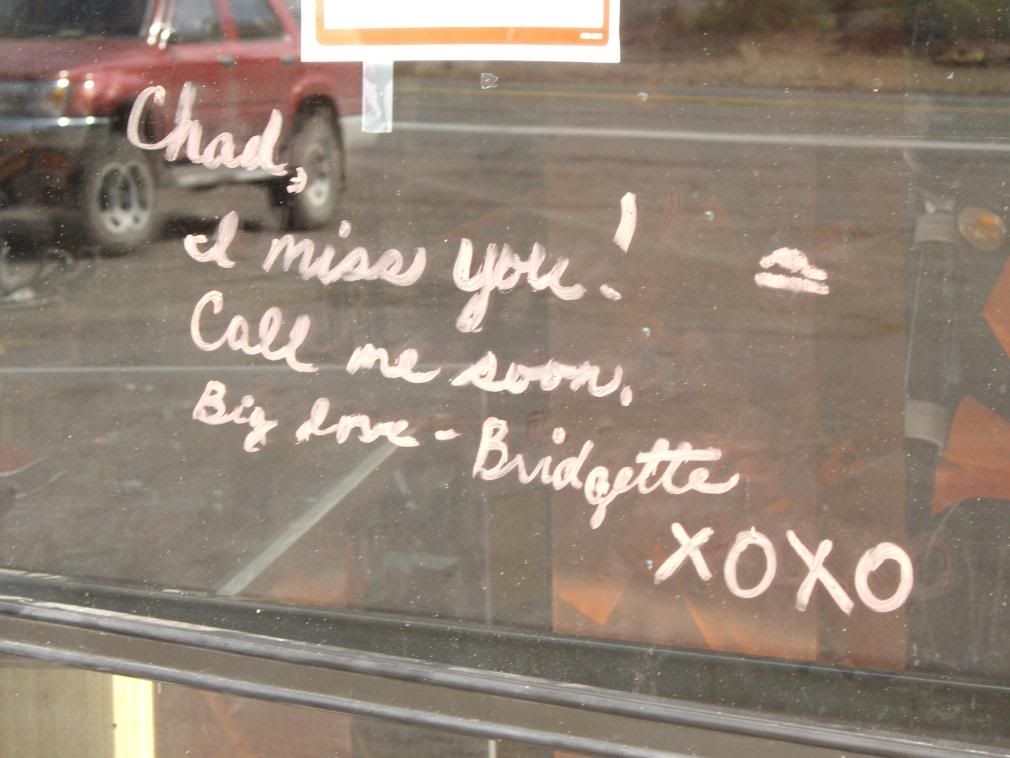 Chad,
I miss you!
Call me soon,
Big love - Bridgette
XOXO